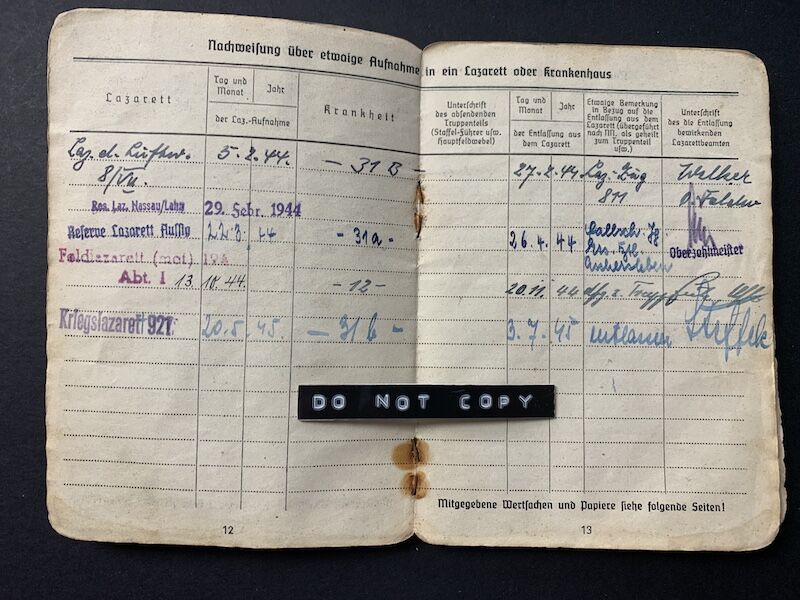 Nachweisung über etwaige Aufnahme in ein Lazarett oder Krankenhaus
Lazarett
Tag und Monat
Jahr
der Laz.-Aufnahme
Krankheit
Unterschrift
des absendenden
Truppenteils
(Staffel-Führer usw.
Hauptfeldwebel)
Tag und Monat
Jahr
der Entlassung aus
dem Lazarett
Etwaige Bemerkung
in Bezug auf die
Entlassung aus dem
Lazarett (übergeführt
nach NN, als geheilt
zum Truppenteil
usw.)
Unterschrift
des die Entlassung
bewirkenden
Lazarettbeamten
Laz. d. Luftw. 5. 2. 44. - 31 B - 27. 2. 44 Laz. Zug
8/VII. 811
Res. Laz. Nassau/Lahn 29. Febr. 1944
Reserve Lazarett Aussig 22 3. 44 - 31a - 26. 4. 44
Oberzahlmeister
Feldlazarett (mot)
Abt. I 13. 10. 44. - 12 - 20. 11. 44
Kriegslazarett 921. 20. 5. 45. - 31 b - 3. 7. 45 entlassen
DO NOT COPY
Mitgegebene Wertsachen und Papiere siehe folgende Seiten!
12
13